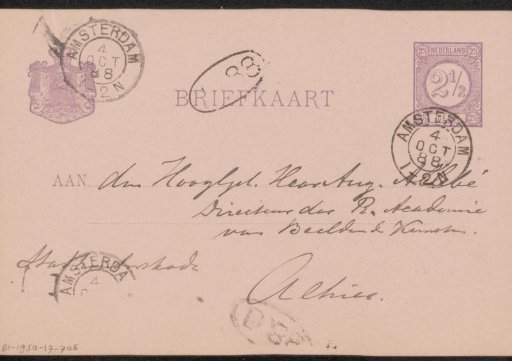 AMSTERDAM
4
OCT
88
2 N
88
BRIEFKAART
NEDERLAND
2½
AMSTERDAM
4
OCT
88
12N
AAN den Hooggel. Heer Aug. Allebé
Directeur der R. Academie
van Beeldende Kunsten.
Stadhouderskade
Alhier.
AMSTERDA
4
BI-1950-17-706